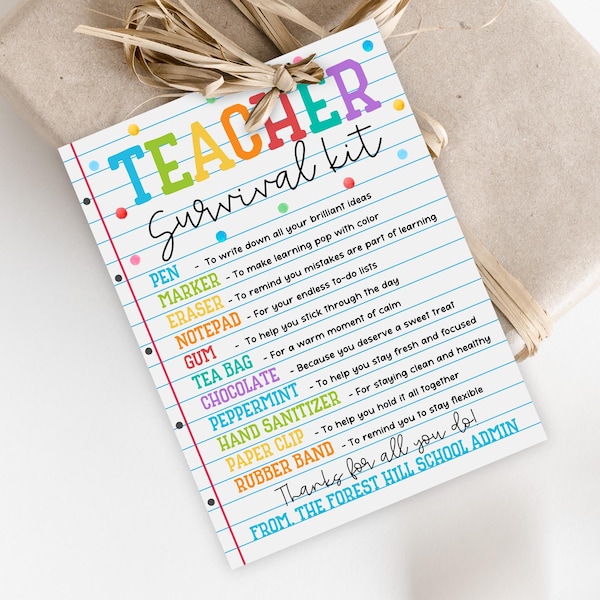 TEACHER
Survival kit
PEN - To write down all your brilliant ideas
MARKER - To make learning pop with color
ERASER - To remind you mistakes are part of learning
NOTEPAD - For your endless to-do lists
GUM - To help you stick through the day
TEA BAG - For a warm moment of calm
CHOCOLATE - Because you deserve a sweet treat
PEPPERMINT - To help you stay fresh and focused
HAND SANITIZER - For staying clean and healthy
PAPER CLIP - To help you hold it all together
RUBBER BAND - To remind you to stay flexible
Thanks for all you do!
FROM, THE FOREST HILL SCHOOL ADMIN